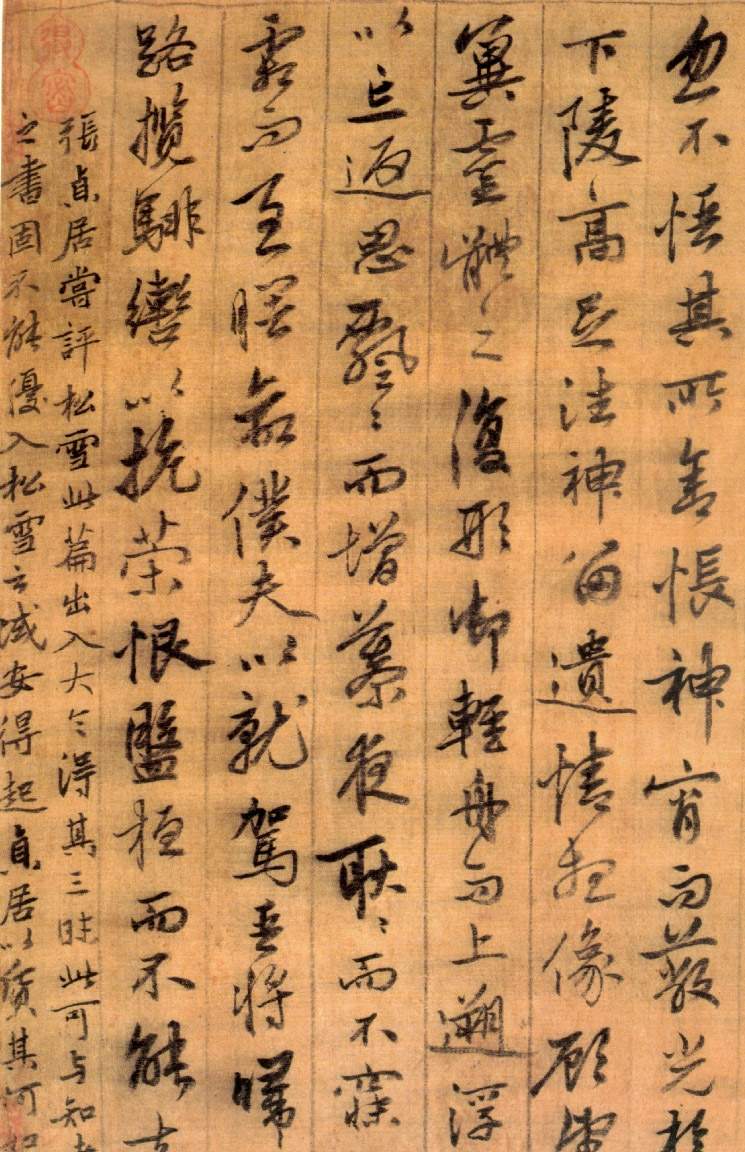 忽不悟其所舍悵神宵而蔽光於
下陵高足往神留遺情想像顧望
冀靈體之復形御輕舟而上遡浮
以忘返思飄〻而增慕夜耿〻而不寐
霜而至曙命僕夫以就駕吾將歸
路攬騑轡以抗策悵盤桓而不能去
張貞居嘗評松雪此篇出入大令得其三昧此可与知者
之書固不能優入松雪之域安得起貞居以質其何如